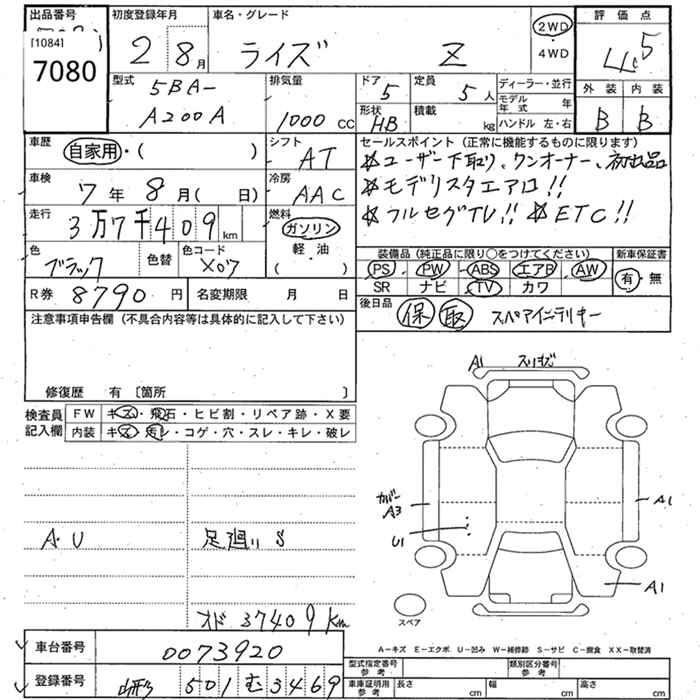 出品番号 初度登録年月 車名・グレード 評価点
[1084]
7080
2 8月 ライズ Z 2WD・4WD 4.5
型式 5BA-A200A
排気量 1000 cc
ドア 5 定員 5人
形状 HB 積載 kg
ディーラー・並行
モデル年式 年
ハンドル 左・右
外装 内装
B B
車歴 自家用・( )
シフト AT
車検 7年 8月( 日)
冷房 AAC
走行 3万7千409km
燃料 ガソリン 軽・油 ( )
色 ブラック 色替 色コード X07
R券 8790円 名変期限 月 日
セールスポイント(正常に機能するものに限ります)
☆ユーザー下取り、ワンオーナー、初出品
☆モデリスタエアロ!!
☆フルセグTV!! ☆ETC!!
装備品(純正品に限り〇をつけてください) 新車保証書
PS PW ABS エアB AW 有・無
SR ナビ TV カワ
後日品 保 取 スペアインテリキー
注意事項申告欄(不具合内容等は具体的に記入して下さい)
修復歴 有〔箇所 〕
検査員記入欄 FW キズ・飛石・ヒビ割・リペア跡・X要
内装 キズ・汚レ・コゲ・穴・スレ・キレ・破レ
A・U 足廻りS
オド 37409km
A1 スリキズ
カバーA3
U1
A1
A1
スペア
A-キズ E-エクボ U-凹み W-補修跡 S-サビ C-腐食 XX-取替済
車台番号 0073920
登録番号 山形 501 む 3469
型式指定番号 参考 類別区分番号 参考
車庫証明用 参考 長さ cm 幅 cm 高さ cm